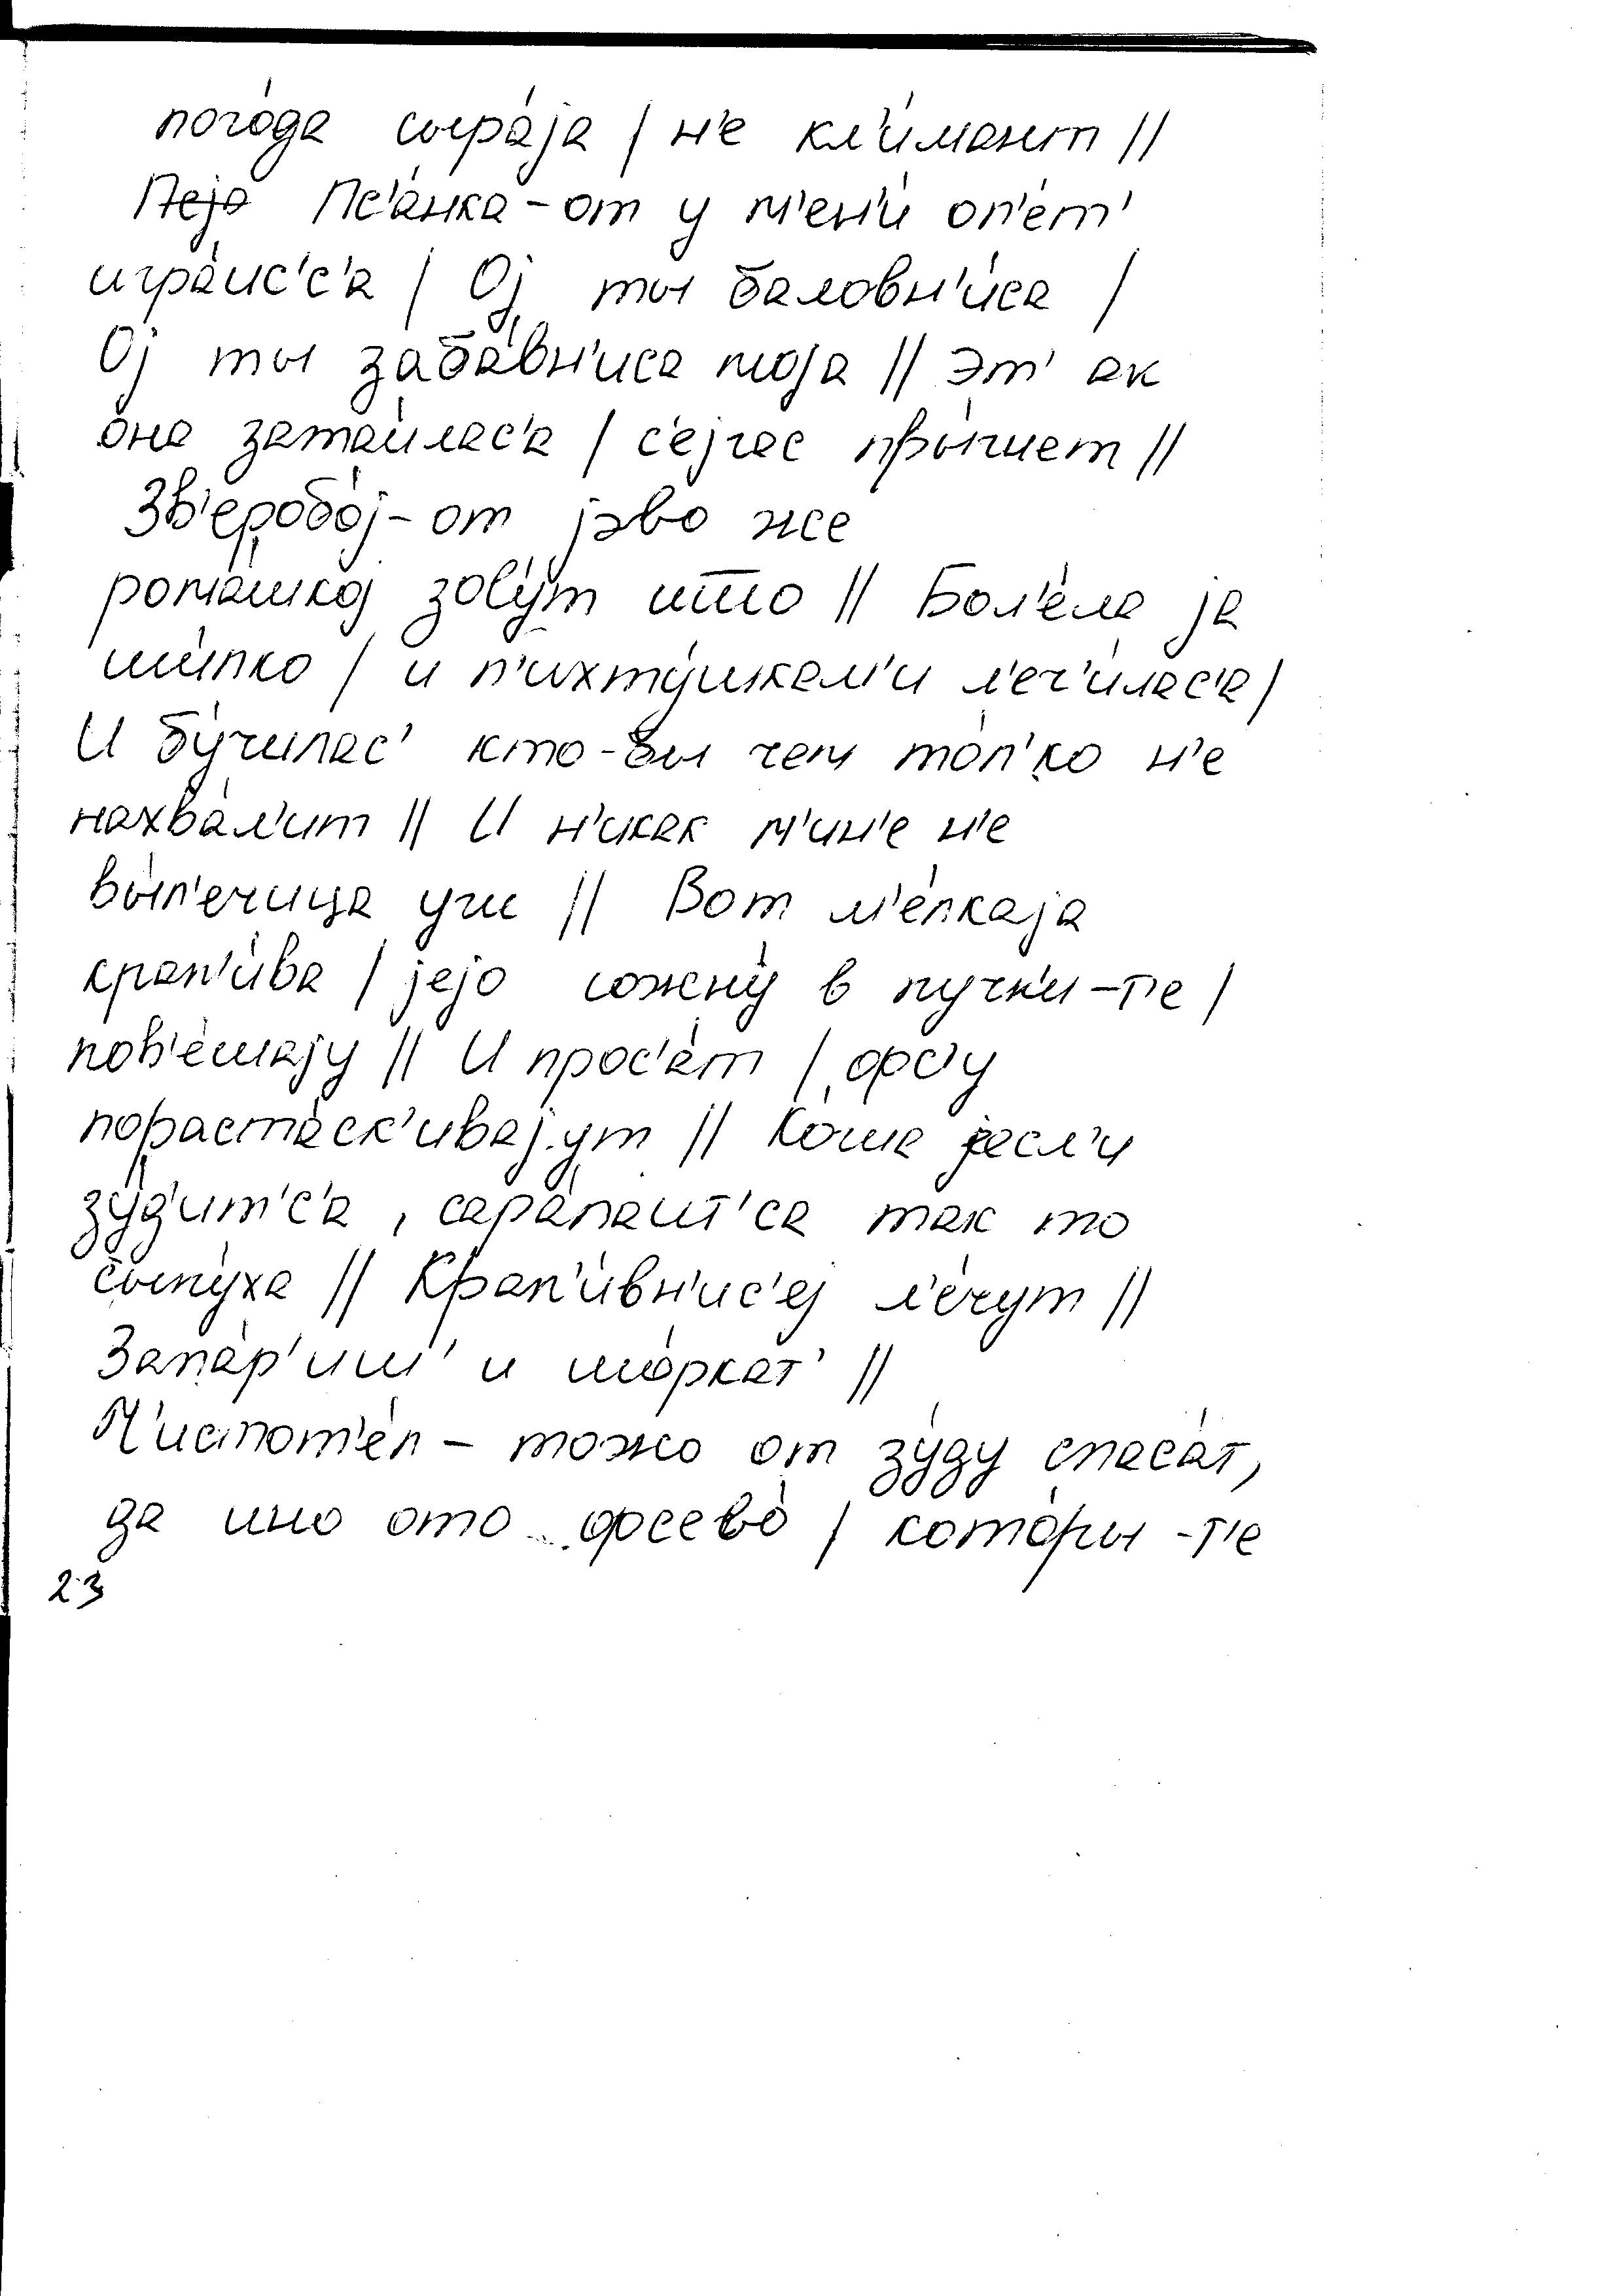 пого́да сыра́jа / н'е кл'и́мант //
Пс'а́нка-от у м'ен'и́ оп'е́т'
игра́ис'с'а / Оj ты баловн'и́са /
Оj ты заба́вн'иса моjа // Эт' ак
она затаи́лас'а / с'еjчас пры́гнет //
Зв'еробо́j-от jэво же
рома́шкоj зову́т што // Бол'е́ла jа
ши́пко / и п'ихту́шкам'и л'еч'и́лас'а /
И бу́чилас' кто-бы чем то́л'ко н'е
нахва́л'ит // И н'икак м'ин'е н'е
вы́л'ечица уш // Вот м'е́лкаjа
крап'и́ва / jеjо сожну́ в пучк'и-т'е /
пов'е́шаjу // И прос'а́т / фс'у
пораста́ск'иваjут // Кожа jесл'и
зу́д'ит'с'а , сара́паит'са так то
сыпу́ха // Крап'и́вн'ис'еj л'е́чут //
Запа́р'иш' и шо́ркат' //
Ч'истот'е́л - тожо от зу́ду спаса́т,
да ино ото фсево́ / кото́ры-т'е
23